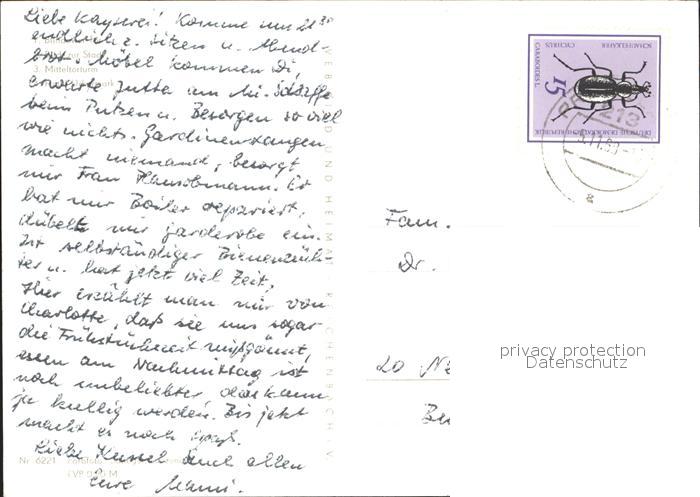 Liebe Kayserei! Komme um 21 30
endlich z. sitzen u. Abend-
brot. Möbel kommen Di,
erwarte Jutta am Mi. Schaffe
beim Putzen u. Besorgen so viel
wie nichts. Gardinenstangen
macht niemand, besorgt
mir Frau Er
hat mir Boiler repariert,
dübelt mir garderobe ein.
Ist selbständiger Bienenzüch-
ter u. hat jetzt viel Zeit.
Hier erzählt man mir von
Charlotte, daß sie uns sogar
die Frühstückszeit mißgönnt,
essen am Nachmittag ist
noch unbeliebter, das kann
ja knllig werden. Bis jetzt
macht es noch Spaß.
Liebe Euch allen
Eure
3. Mitteltorturm
Nr. 6221
EVP 0,20 M
BILD UND HEIMAT REICHENBACH I. V.
DEUTSCHE DEMOKRATISCHE REPUBLIK
15
CARABOIDES L.
CYCHRUS
SCHAUFELKÄFER
213
.11.68
a
Fam.
Dr.
privacy protection
Datenschutz